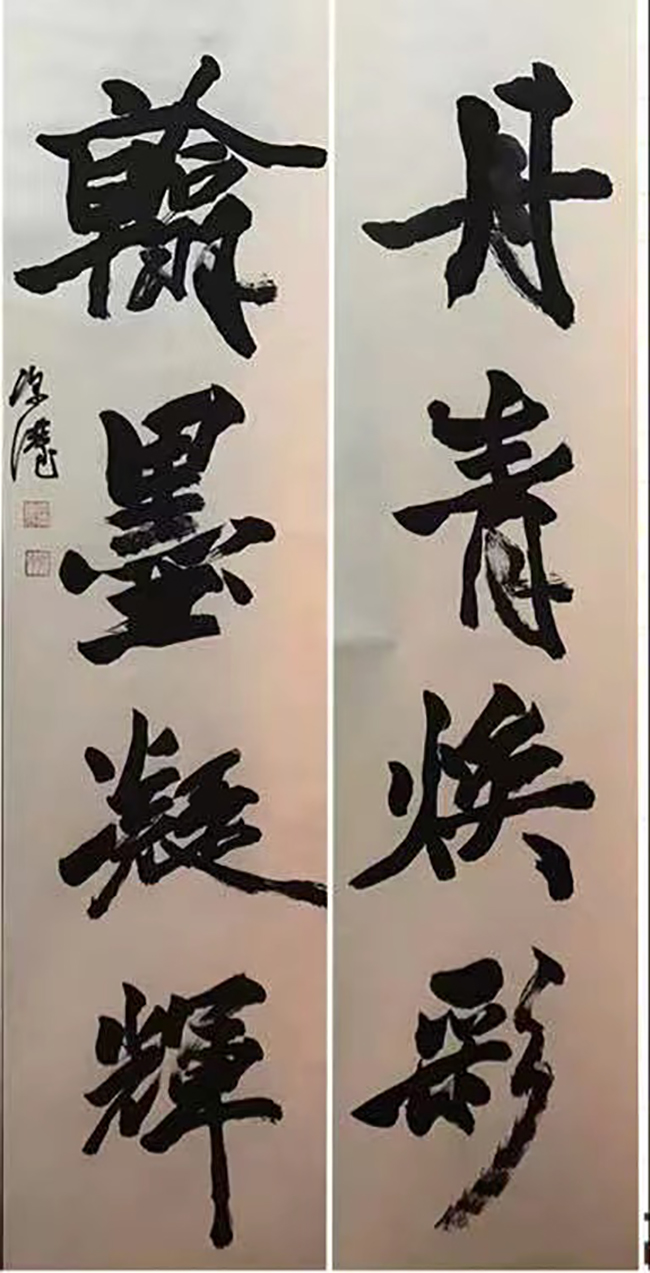 丹青焕彩
翰墨凝輝